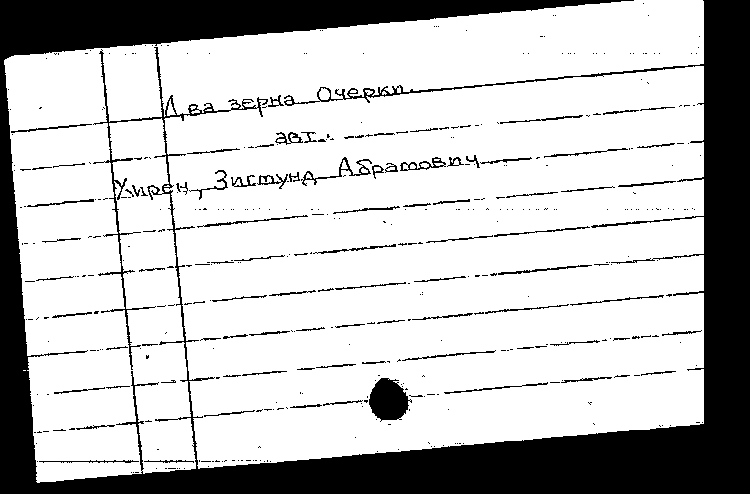 Два зерна Очерки.
авт.
Хирен, Зигмунд Абрамович